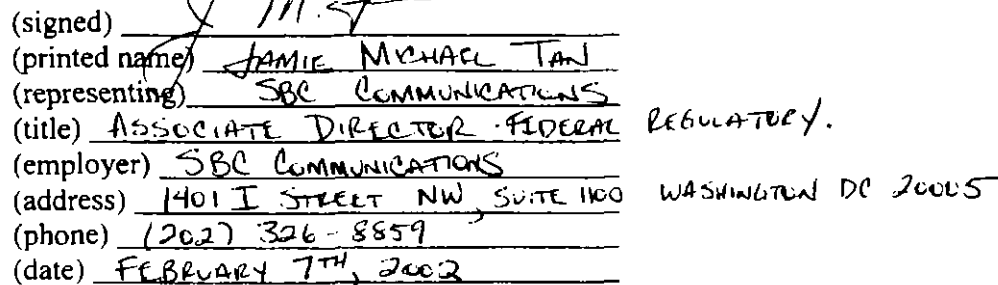 (signed)
(printed name) JAMIE MICHAEL TAN
(representing) SBC COMMUNICATIONS
(title) ASSOCIATE DIRECTOR - FEDERAL REGULATORY.
(employer) SBC COMMUNICATIONS
(address) 1401 I STREET NW, SUITE 1100 WASHINGTON DC 20005
(phone) (202) 326-8859
(date) FEBRUARY 7TH, 2002